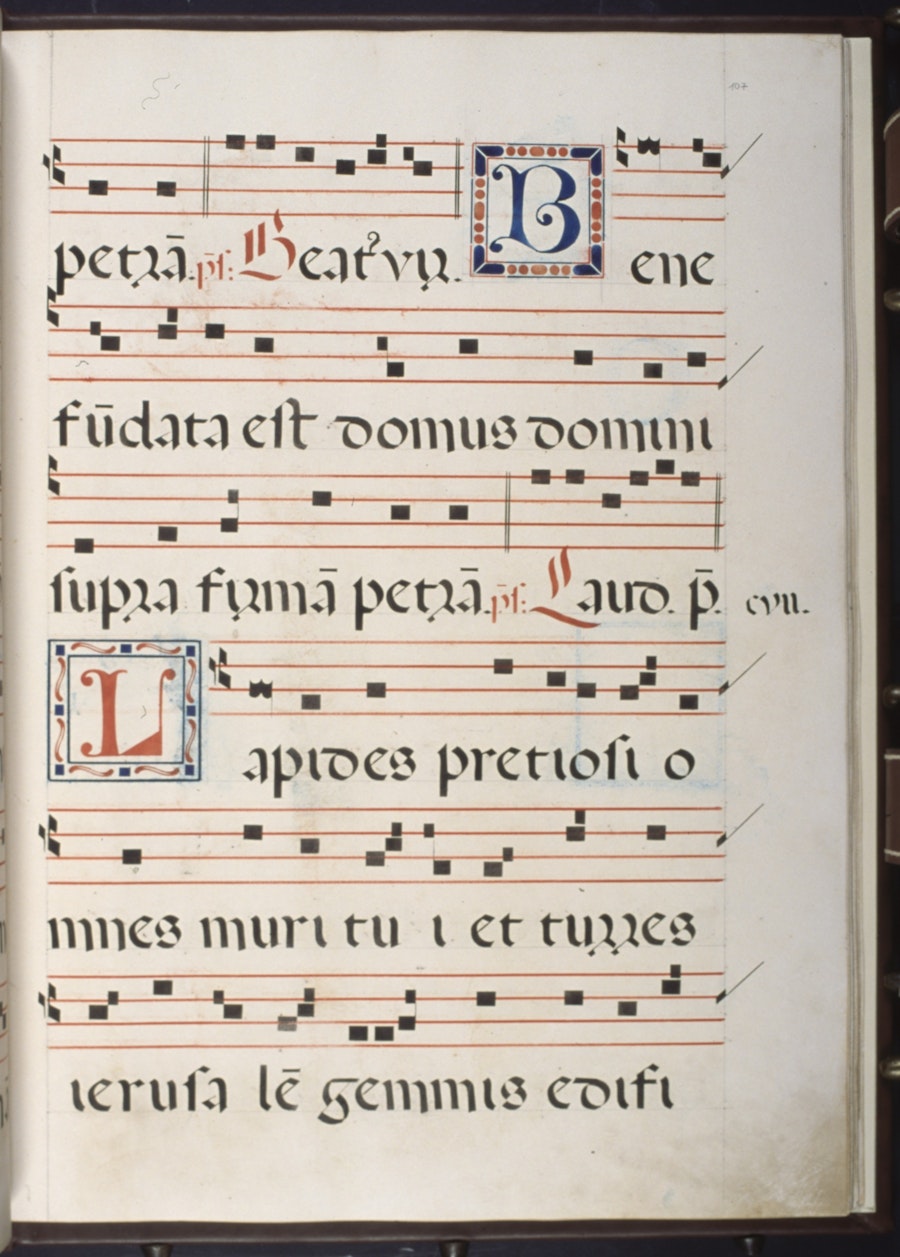 107
petrā. ps: Beatꝰ vir. Bene
fūdata est domus domini
supra firmā petrā. ps: Laud. p̄. cvii.
Lapides pretiosi o
mnes muri tu i et turres
ierusa lē gemmis edifi